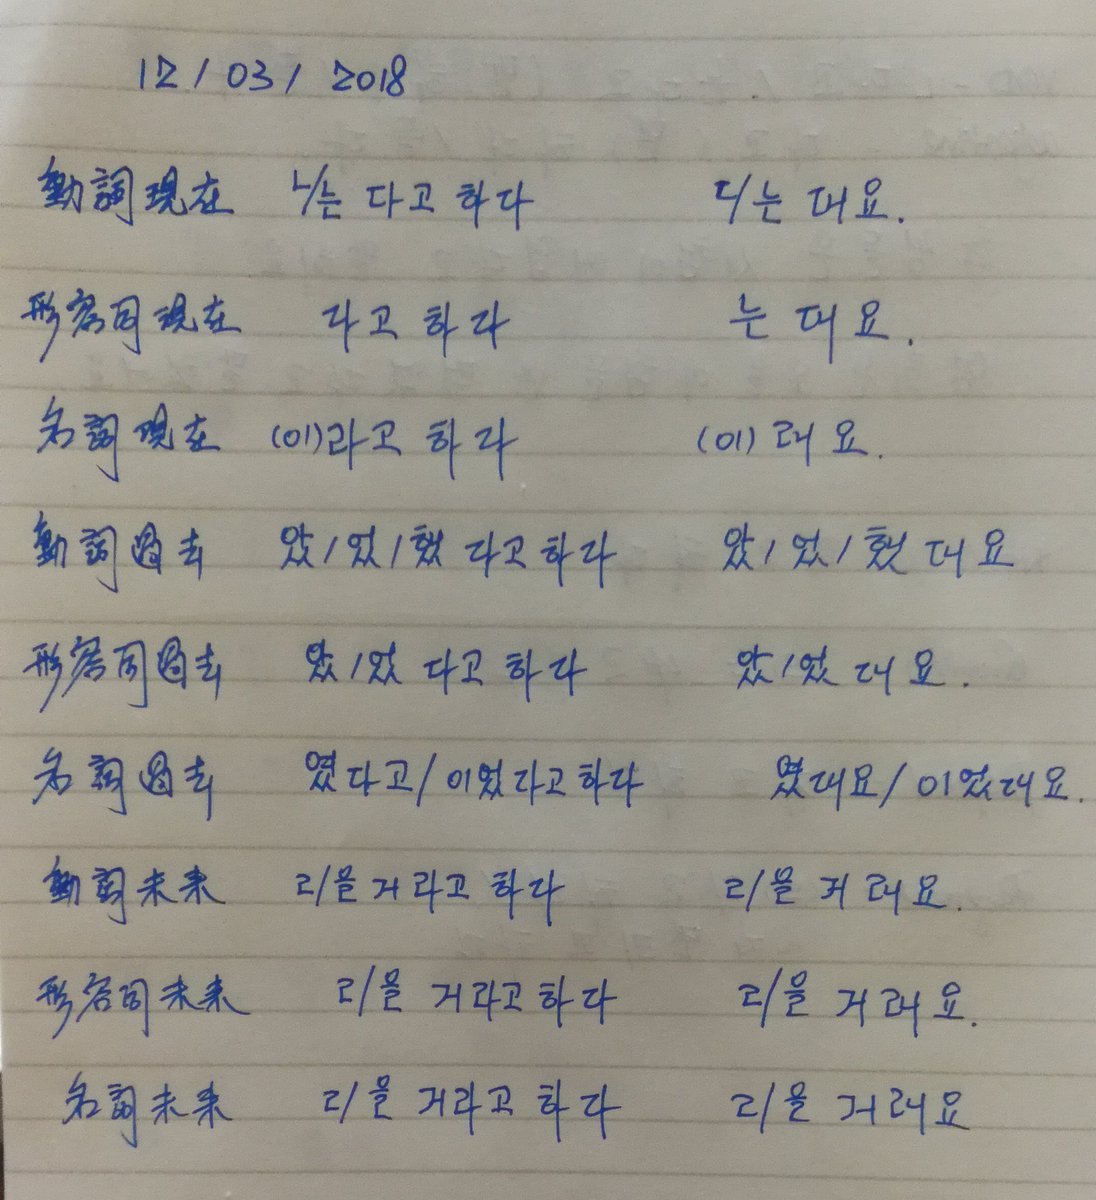 12/03/2018
動詞現在 ㄴ/는 다고 하다 ㄷ/는 대요.
形容詞現在 다고 하다 는 대요.
名詞現在 (이)라고 하다 (이) 래요.
動詞過去 았/었/했 다고 하다 았/었/했 대요
形容詞過去 았/었 다고 하다 았/었 대요.
名詞過去 였다고/이었다고하다 였대요/이었대요.
動詞未来 ㄹ/을 거라고 하다 ㄹ/을 거 래요.
形容詞未来 ㄹ/을 거라고 하다 ㄹ/을 거 래요.
名詞未来 ㄹ/을 거라고 하다 ㄹ/을 거 래요